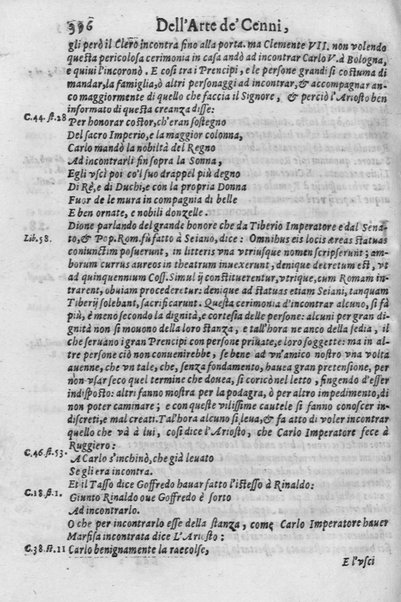 396 Dell'Arte de' Cenni,
gli però il Clero incontra fino alla porta. ma Clemente VII. non volendo
questa pericolosa cerimonia in casa andò ad incontrar Carlo V. à Bologna,
e quiui l'incoronò. E cosi trai Prencipi, e le persone grandi si costuma di
mandar, la famiglia, ò altri personaggi ad incontrar, & accompagnar an-
co maggiormente di quello che faccia il Signore, & perciò l'Ariosto ben
informato di questa creanza disse:
C. 44. st. 28 Per honorar costor, ch'eran sostegno
Del sacro Imperio, e la maggior colonna,
Carlo mandò la nobiltà del Regno
Ad incontrarli fin sopra la Sonna,
Egli vscì poi co'l suo drappel più degno
Di Rè, e di Duchi, e con la propria Donna
Fuor de le mura in compagnia di belle
E ben ornate, e nobili donzelle.
Dione parlando del grande honore che da Tiberio Imperatore e dal Sena-
Lib. 58. to, & Pop. Rom. fù fatto à Seiano, dice: Omnibus eis locis æreas statuas
coniunctim posuerunt, in litteris vna vtriusque nomen scripserunt; am-
borum currus aureos in theatrum inuexerunt, denique decretum est, vt
ad quinquennium Coss. Simul ij constituerentur, vtrique, cum Romam in-
trarent, obuiam procederetur: denique ad statuas etiam Seiani, tanquam
Tiberij solebant, sacrificarunt. Questa cerimonia d'incontrar alcuno, si fà
più, è meno secondo la dignità, e cortesia delle persone: alcuni per gran di-
gnità non si mouono della loro stanza, e tall'hora ne anco della sedia, il
che seruano i gran Prencipi con persone priuate, e loro soggette: ma in al-
tre persone ciò non conuenirebbe, se bene ad vn'amico nostro vna volta
auenne, che vn tale, che, senza fondamento, hauea gran pretensione, per
non vsar seco quel termine che douea, si coricò nel letto, fingendo d'esser
indisposto: altri fanno mostra per la podagra, ò per altro impedimento, di
non poter caminare; e con queste vilissime cautele si fanno conoscer in-
discreti, e mal creati. Tal'hora alcuno si leua, & fa atto di voler incontrar
quello che và à lui, così dice l'Ariosto, che Carlo Imperatore fece à
Ruggiero:
C. 46. st. 53. A Carlo s'inchinò, che già leuato
Se gli era incontra.
Et il Tasso dice Goffredo hauar fatto l'istesso à Rinaldo:
C. 18. st. 1. Giunto Rinaldo oue Goffredo è sorto
Ad incontrarlo.
O che per incontrarlo esse della stanza, come Carlo Imperatore hauer
Marfisa incontrata dice L'Ariosto:
C. 38. st. 11 Carlo benignamente la raccolse,
E l'vsci